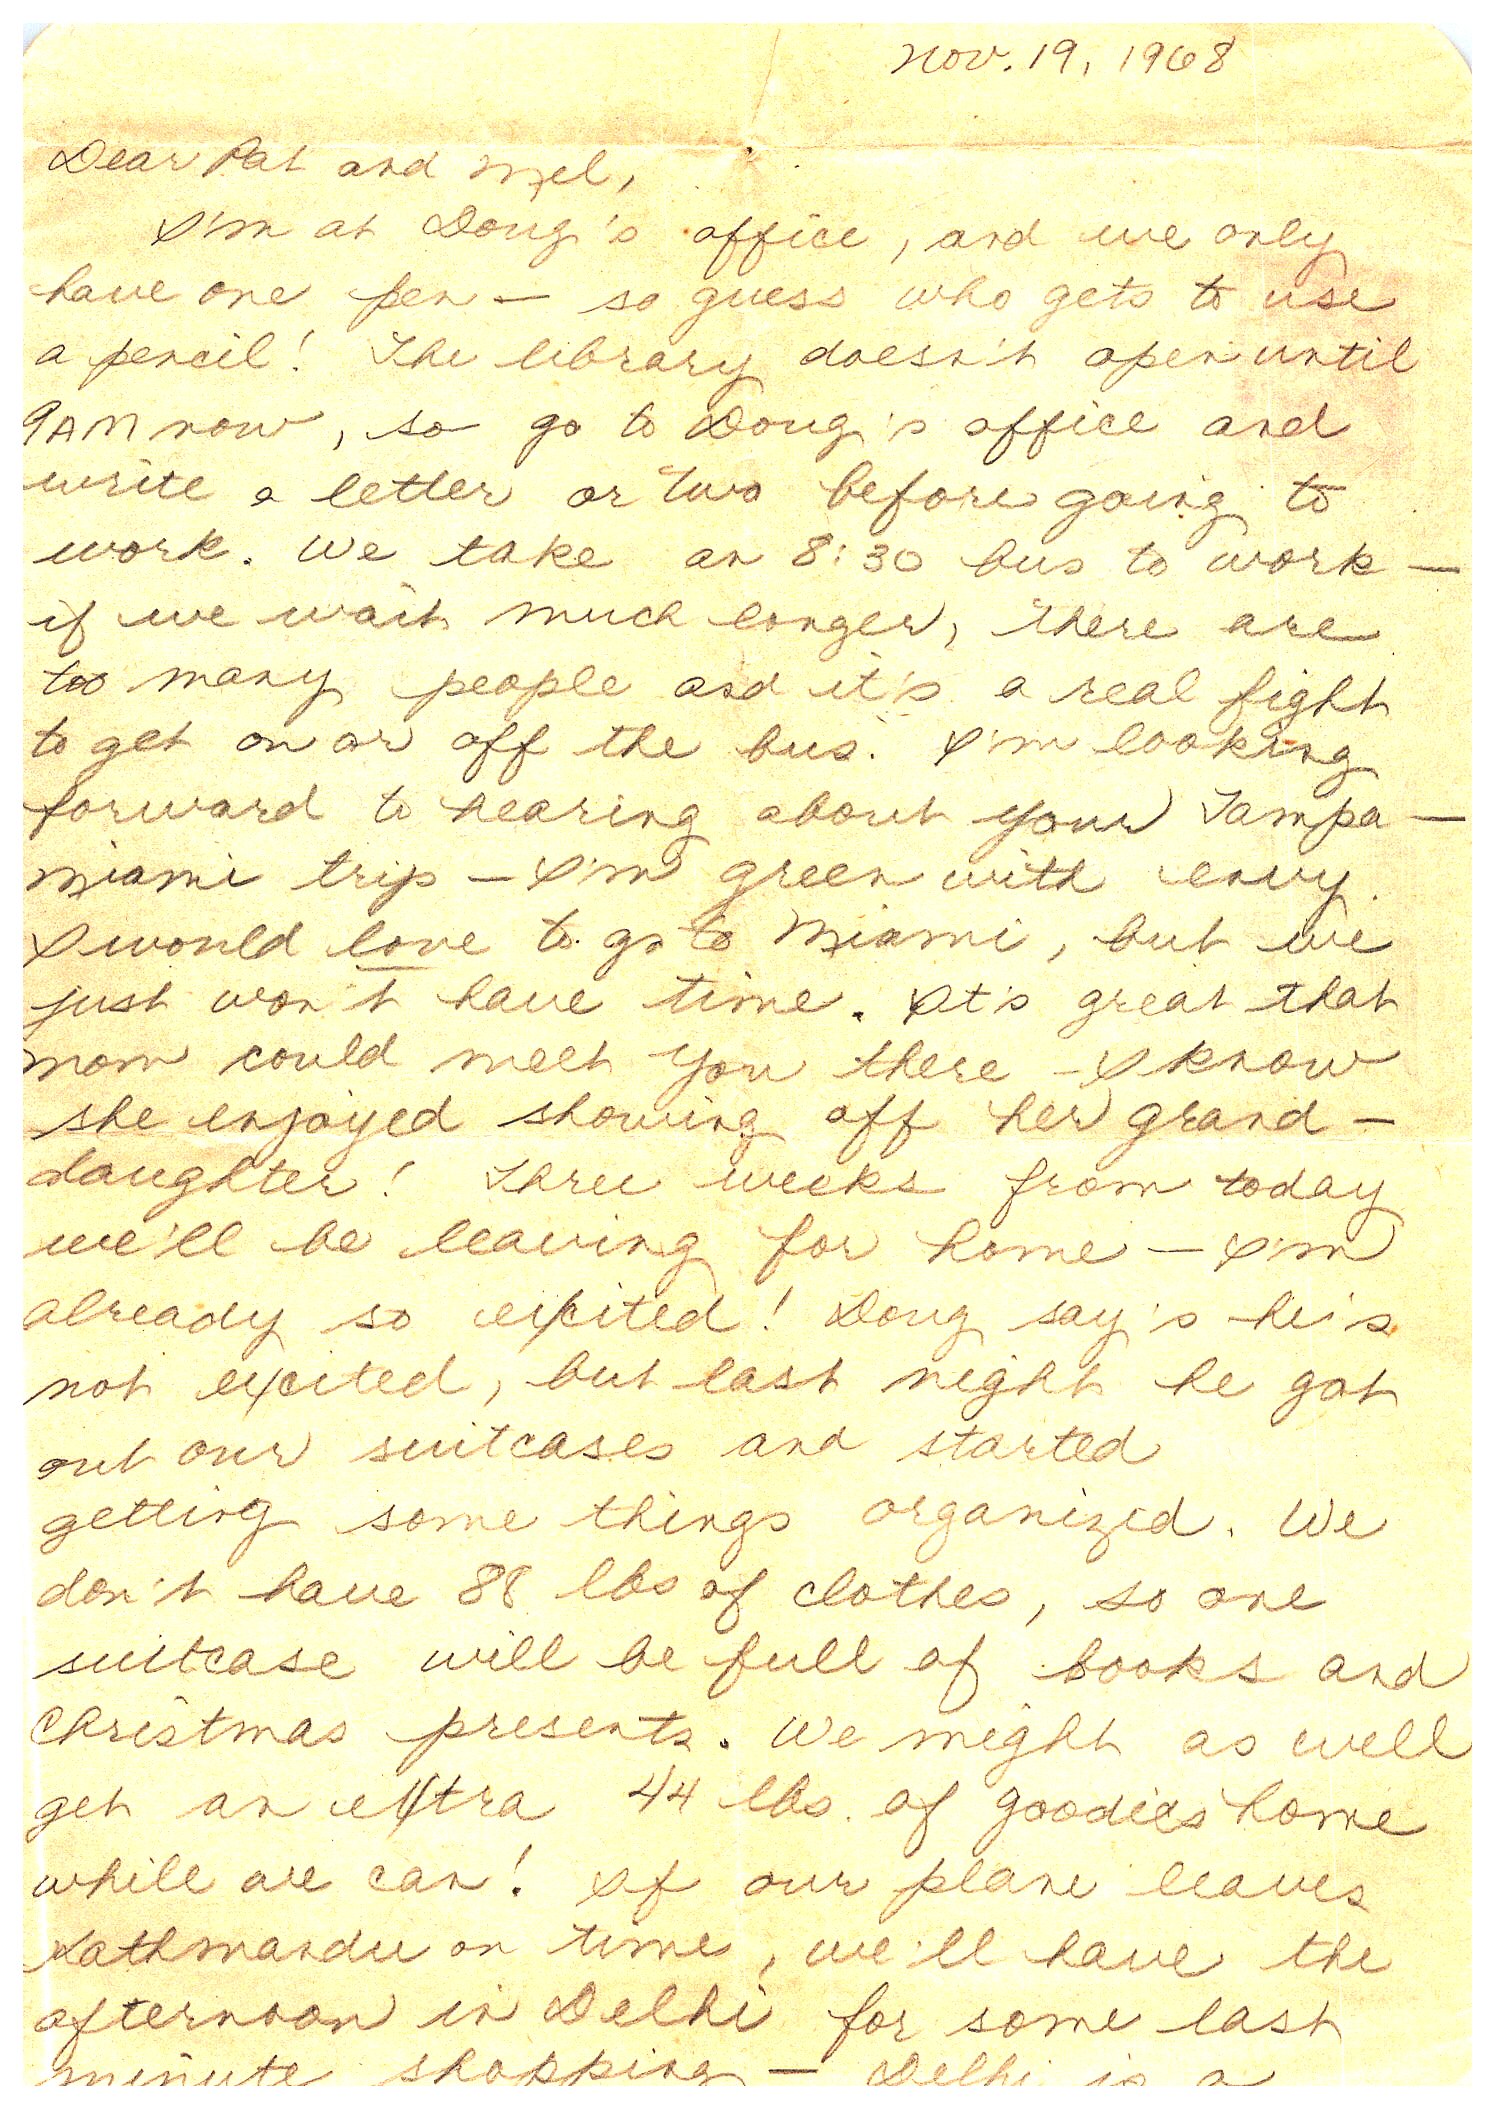 Nov. 19, 1968
Dear Pat and Mel,
I'm at Doug's office, and we only
have one pen — so guess who gets to use
a pencil! The library doesn't open until
9AM now, so go to Doug's office and
write a letter or two before going to
work. We take an 8:30 bus to work —
if we wait much longer, there are
too many people and it's a real fight
to get on or off the bus. I'm looking
forward to hearing about your Tampa —
Miami trip — I'm green with envy.
I would love to go to Miami, but we
just won't have time. It's great that
mom could meet you there — I know
she enjoyed showing off her grand —
daughter! Three weeks from today
we'll be leaving for home — I'm
already so excited! Doug say's he's
not excited, but last night he got
out our suitcases and started
getting some things organized. We
don't have 88 lbs of clothes, so one
suitcase will be full of books and
Christmas presents. We might as well
get an extra 44 lbs. of goodies home
while we can! If our plane leaves
Kathmandu on time, we'll have the
afternoon in Delhi for some last
minute shopping — Delhi is a